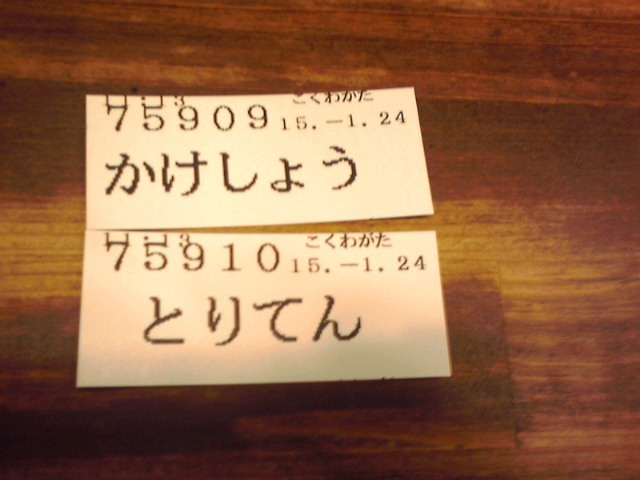 こくわがた
75909 15.-1.24
かけしょう
こくわがた
75910 15.-1.24
とりてん